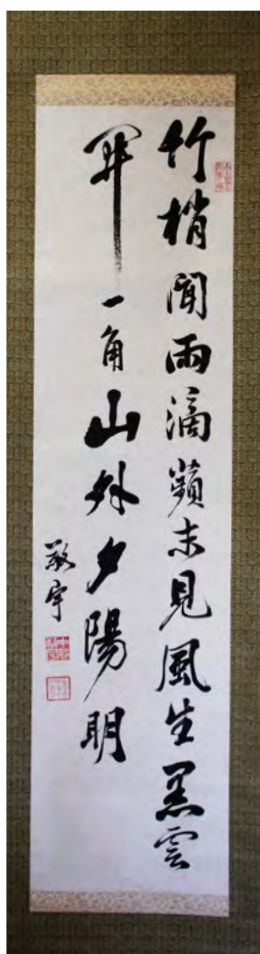 竹梢聞雨滴蘋末見風生黒雲
開一角山外夕陽明
敬宇